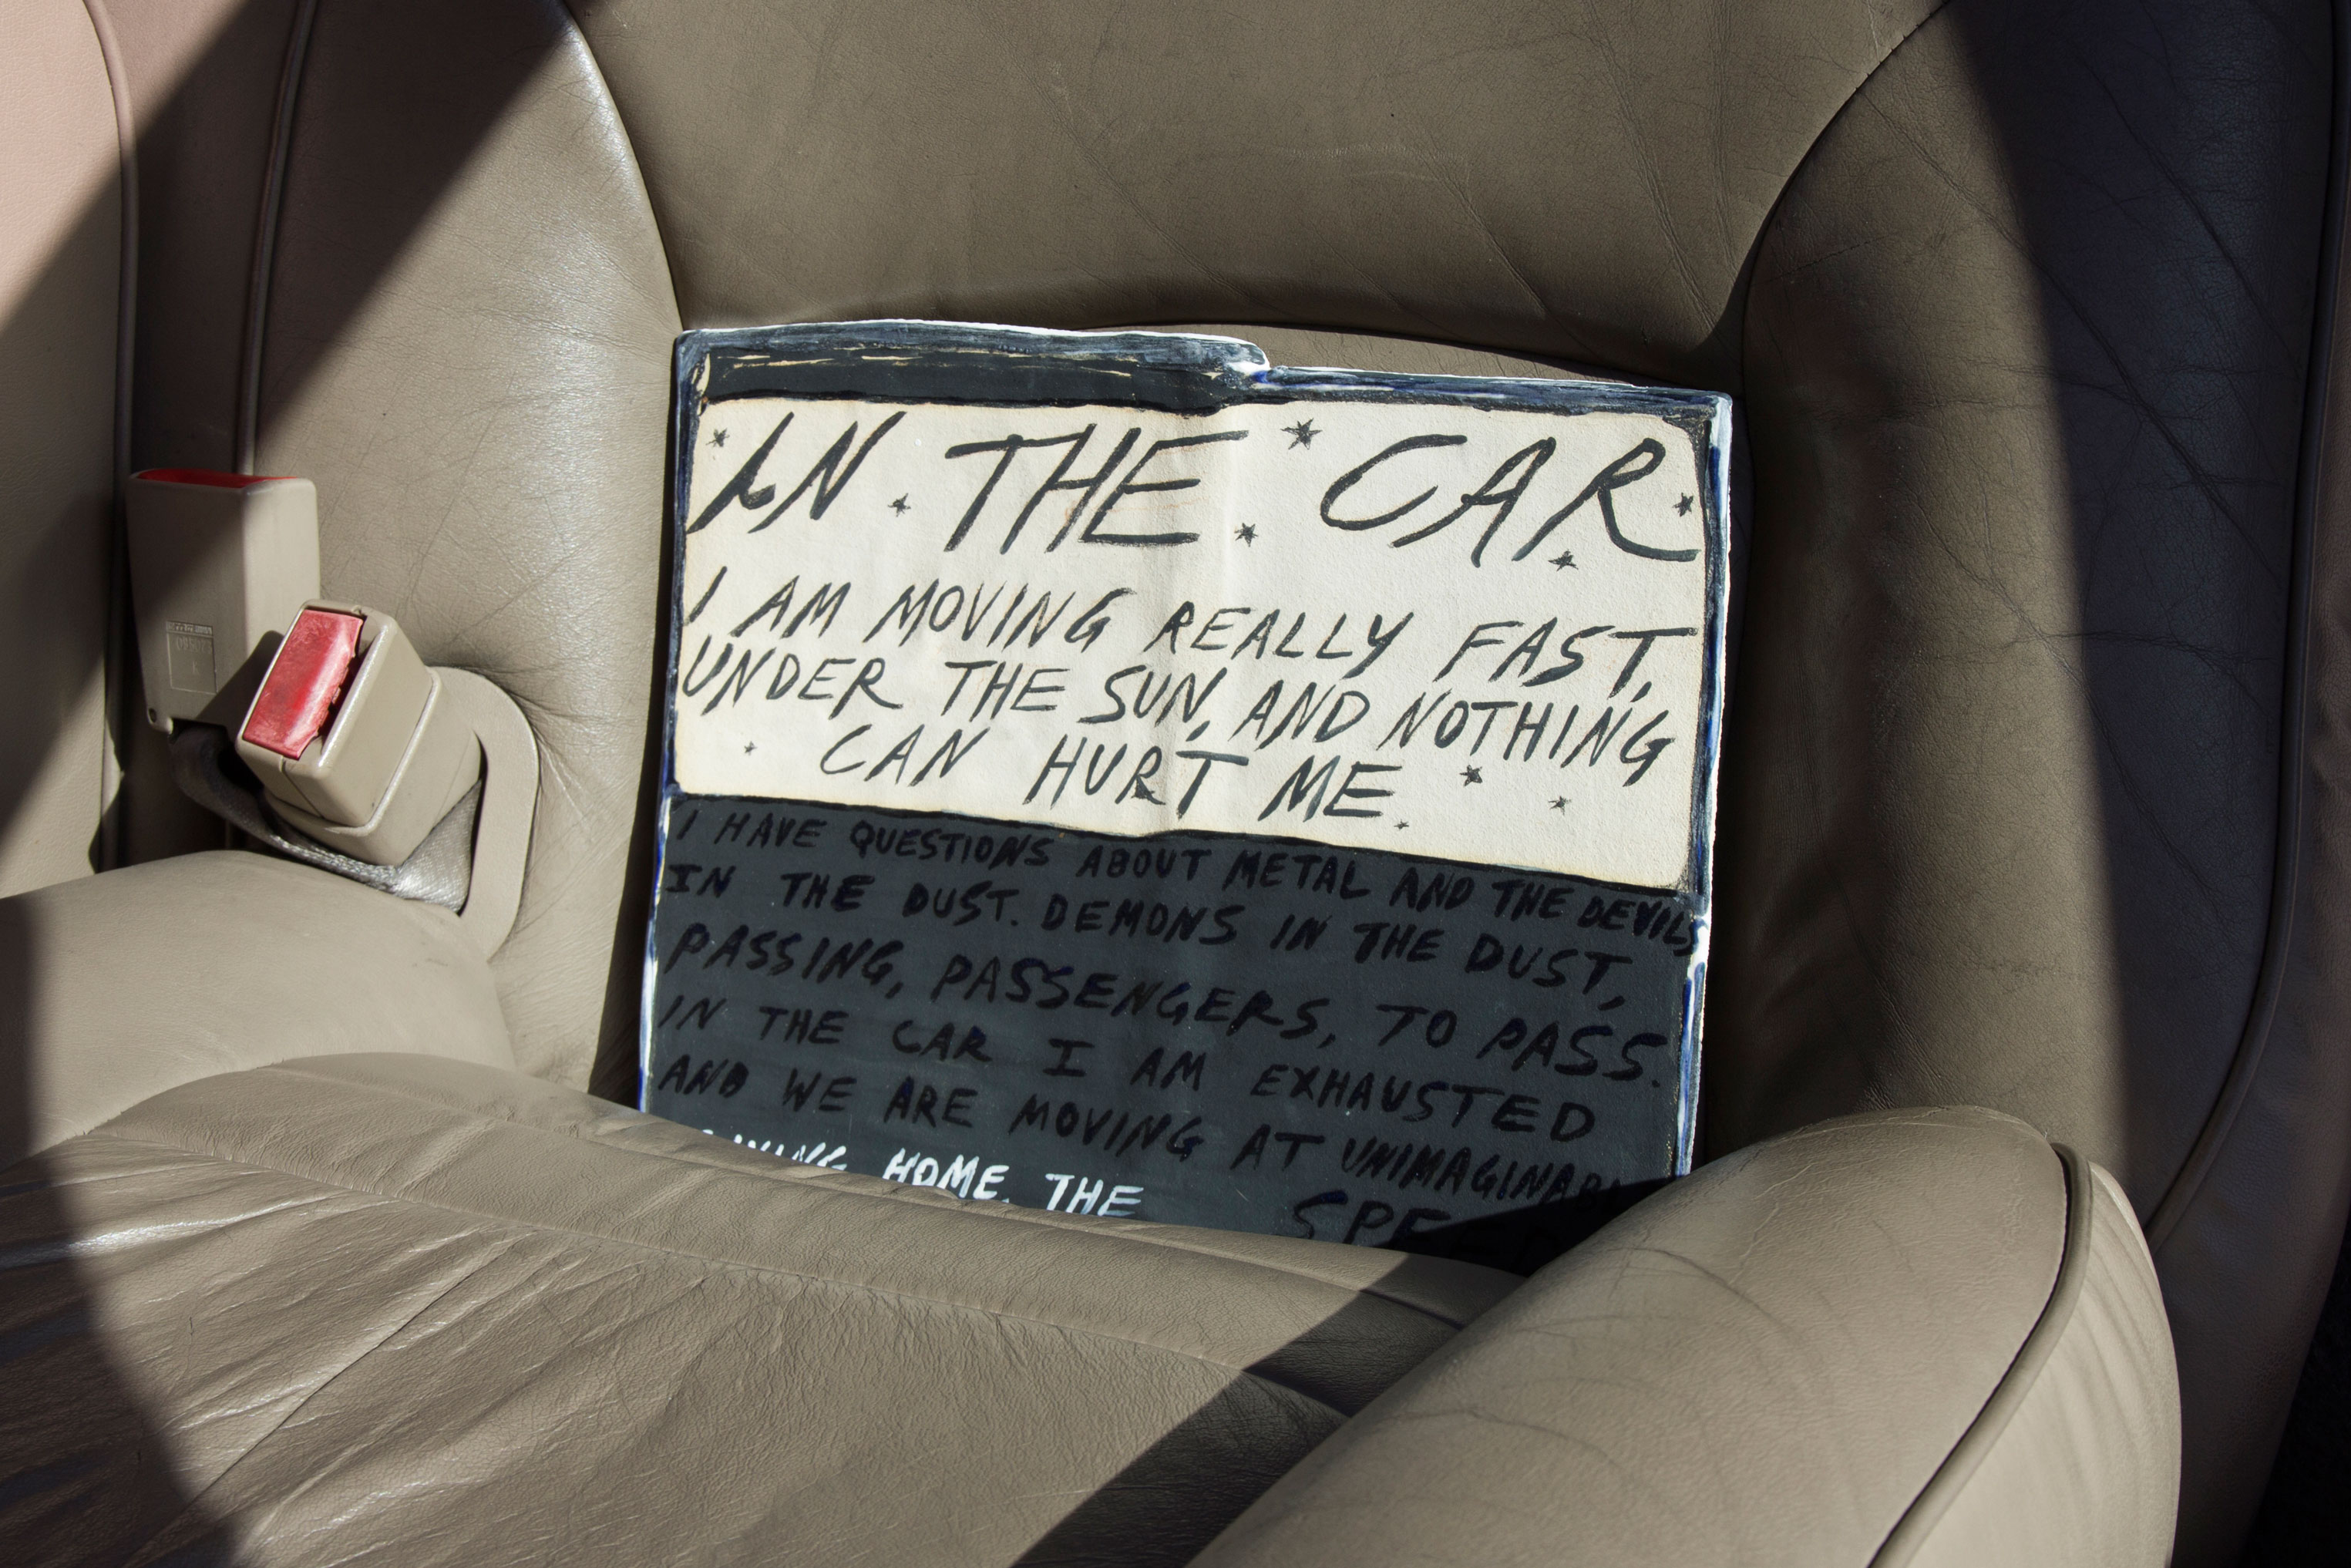 IN THE CAR
I AM MOVING REALLY FAST,
UNDER THE SUN, AND NOTHING
CAN HURT ME.
I HAVE QUESTIONS ABOUT METAL AND THE DEVILS
IN THE DUST. DEMONS IN THE DUST,
PASSING, PASSENGERS, TO PASS.
IN THE CAR I AM EXHAUSTED
AND WE ARE MOVING AT
HOME. THE